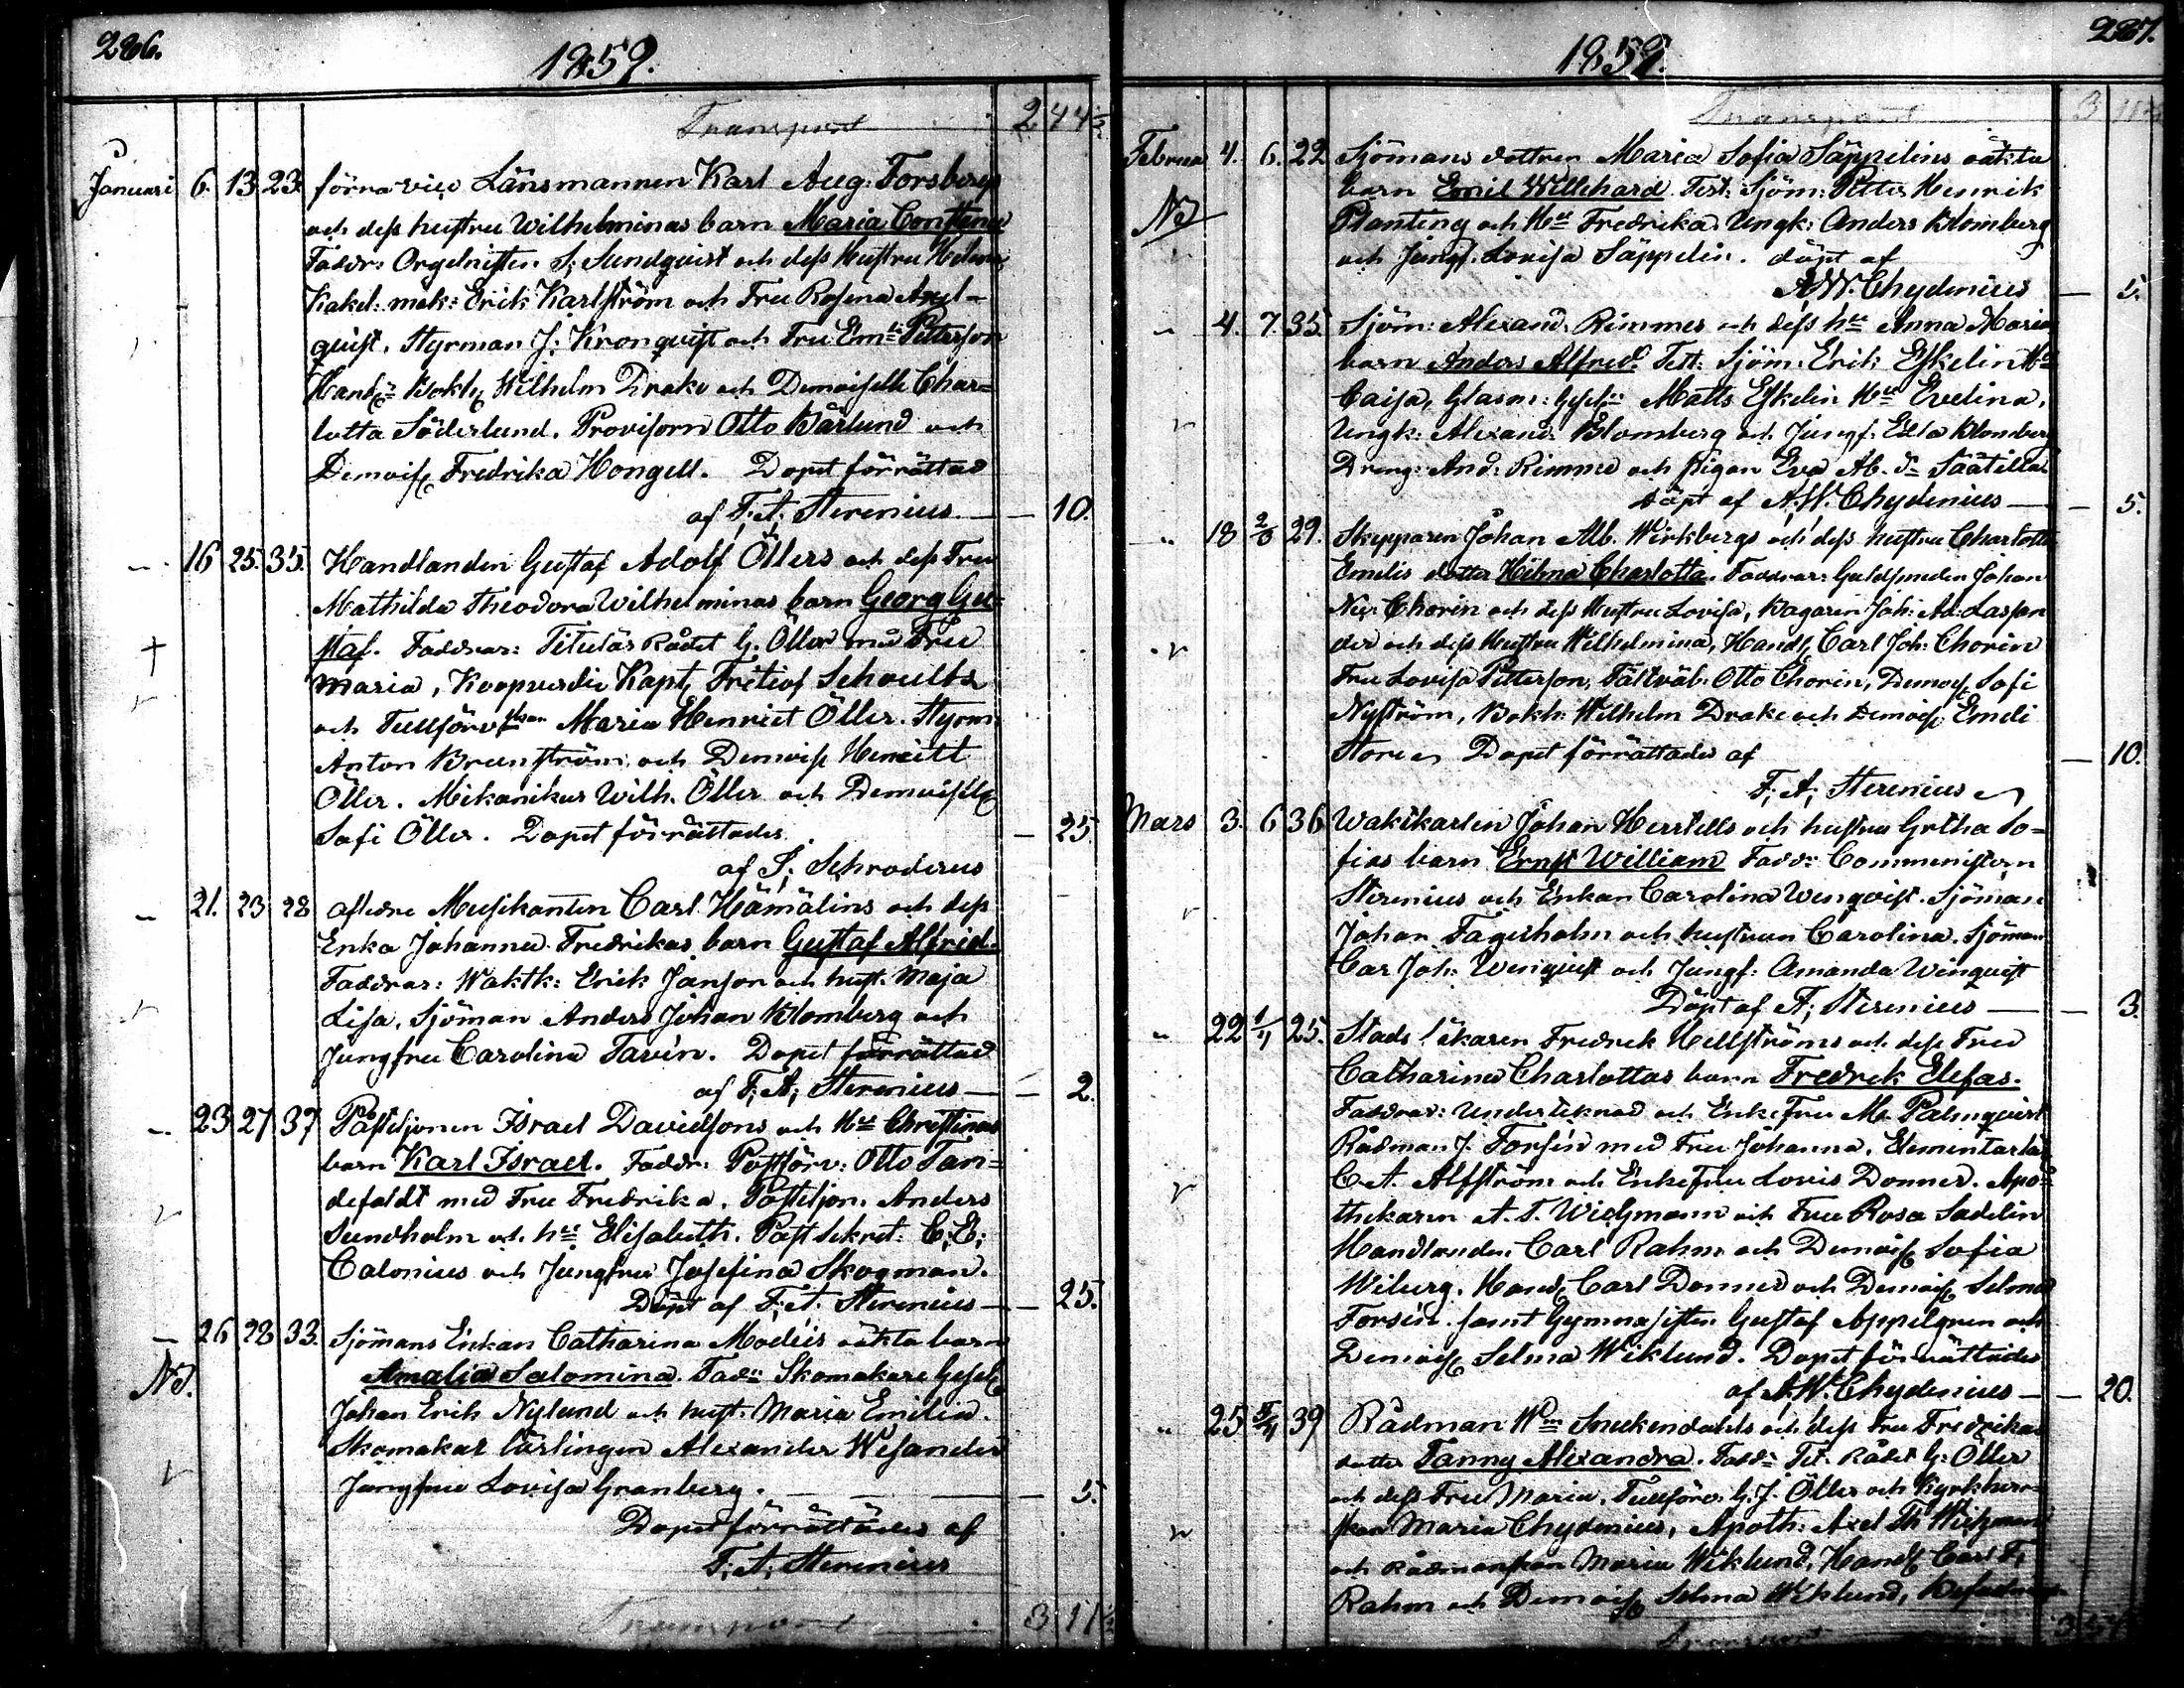 286.
1859.
Transport 2 44½
Januari 6. 13 23. förra vice Länsmannen Karl Aug: Forsbergs
och dess hustru Wilhelminas barn Maria Constance
Faddr: Orgelnisten S; Sundqvist och dess Hustru Helena
Kakel: mak: Erik Karlström och Fru Rosina
qvist, Styrman J: Kronqvist och Fru Em: Petterson
Hand: Bokh, Wilhelm Drake och Demoiselle Char=
lotta Söderlund, Provisorn Otto Bärlund och
Demois, Fredrika Hongell. Dopet förrättad
af F; A; Sterenius — 10.
16 25. 35. Handlanden Gustaf Adolf Öllers och dess Fru
Mathilda Theodora Wilhelminas barn Georg Gu=
staf. Faddrar: Titulär Rådet G. Öller med Fru
Maria, Koopverdie Kapt, Fritiof Schoultz
och Tullförv:skan Maria Henriet Öller. Styrm:
Anton Brunström och Demoise Henriett
Öller. Mekanikus Wilh. Öller och Demoiselle
Sofi Öller. Dopet förrättades — 25
af S; Schroderus
21. 23 28 aflidne Musikanten Carl Hämälins och dess
Enka Johanna Fredrikas barn Gustaf Alfrid.
Faddrar: Waktk: Erik Janson och hust: Maja
Lisa, Sjöman Anders Johan Blomberg och
Jungfru Carolina Tavin. Dopet förrättad
af F; A; Sterenius — 2.
23 27 37 Postiljonen Israel Davidsons och Hu Christinas
barn Karl Israel. Faddr: Postförv: Otto Tan=
defeldt med Fru Fredrika. Postiljon: Anders
Sundholm och hu Elisabeth. Post Sekret: C; E;
Calonius och Jungfru Josefina Skogman.
Döpt af F; A. Sterenius — 25.
26 28 33. Sjömans Enkan Catharina Modéis oäkta barn
Nd. Amalia Salomina. Fadd: Skomakare Gesel,
Johan Erik Nylund och hust: Maria Emilia.
Skomakar lärlingen Alexander Wesander
Jungfru Lovisa Granberg. — 5.
Dopet förrättades af
F; A; Sterenius
Transport 3 11½
287.
1859.
Transport 3
Februar 4. 6. 22 Sjömans dottren Maria Sofia Säppelins oäkta
barn Emil Willehard. Test: Sjöm: Petter Henrik
Nd Planting och Hu Fredrika. Ungk: Anders Blomberg
och Jungf. Lovisa Säppelin. döpt af
A.W. Chydenius — 5.
4. 7. 35. Sjöm: Alexand: Rimmes och dess hu Anna Maria
barn Anders Alfred. Test: Sjöm: Erik Eskelin Hu
Caisa, Glasm: Matts Eskelin Hu Evelina,
Ungk: Alexand: Blomberg och Jungf: Edla Blomberg
Dräng: And: Rimme och pigan Eva Ab. dr Säätillä
döpt af A. W. Chydenius — 5.
18 2/3 29. Skepparen Johan Alb. Wirkbergs och dess hustru Charlotta
Emelis dotter Hilma Charlotta. Faddrar: Guldsmeden Johan
Nic: Chorin och dess Hustru Lovisa, Bagaren Joh: Ad: Lassan
der och dess Hustru Wilhelmina, Handl, Carl Joh: Chorin
Fru Lovisa Petterson, Fältväb: Otto Chorin, Demois, Sofi
Nyström, Bokh: Wilhelm Drake och Demois, Emeli
Dopet förrättades af — 10.
F; A; Sterenius
Mars 3. 6 36 Waktkarlen Johan Herrtells och hustru Gretha So=
fias barn Ernst William Fadd: Comministern
Sterenius och Enkan Carolina Wenqvist. Sjöman
Johan Fagerholm och hustrun Carolina. Sjöman
Car Joh: Wenqvist och Jungf: Amanda Winqvist
Döpt af A; Sterenius — 3.
22 1/4 25. Stads läkaren Fredrik Hellströms och dess Fru
Catharina Charlottas barn Fredrik Elefas.
Faddrar: Undertecknad och Enkefru M. Palmqvist
Rådman J. Forsén med Fru Johanna. Elementarlär
C. A. Alfström och Enkefru Lovis Donner. Apo=
thekaren A. T. Wichmann och Fru Rosa Sadelin
Handlanden Carl Rahm och Demois, Sofia
Wiburg. Hand, Carl Donner och Demois, Selma
Forsén. samt Gymnasisten Gustaf Appelgren och
Demois, Selma Wiklund. Dopet förrättades
af A. W. Chydenius — 20.
25 39 Rådman Wm Snickendahls och dess Fru Fredrikas
dotter Fanny Alexandra. Fadd: Tit. Rådet G: Öller
och dess Fru Maria. Tullförv: G. J. Öller och Kyrkher=
skan Maria Chydenius, Apoth: Axel Th Wichmann
och Rådmanskan Maria Wiklund, Handl Carl F;
Rahm och Demois, Selma Wiklund,
Transport